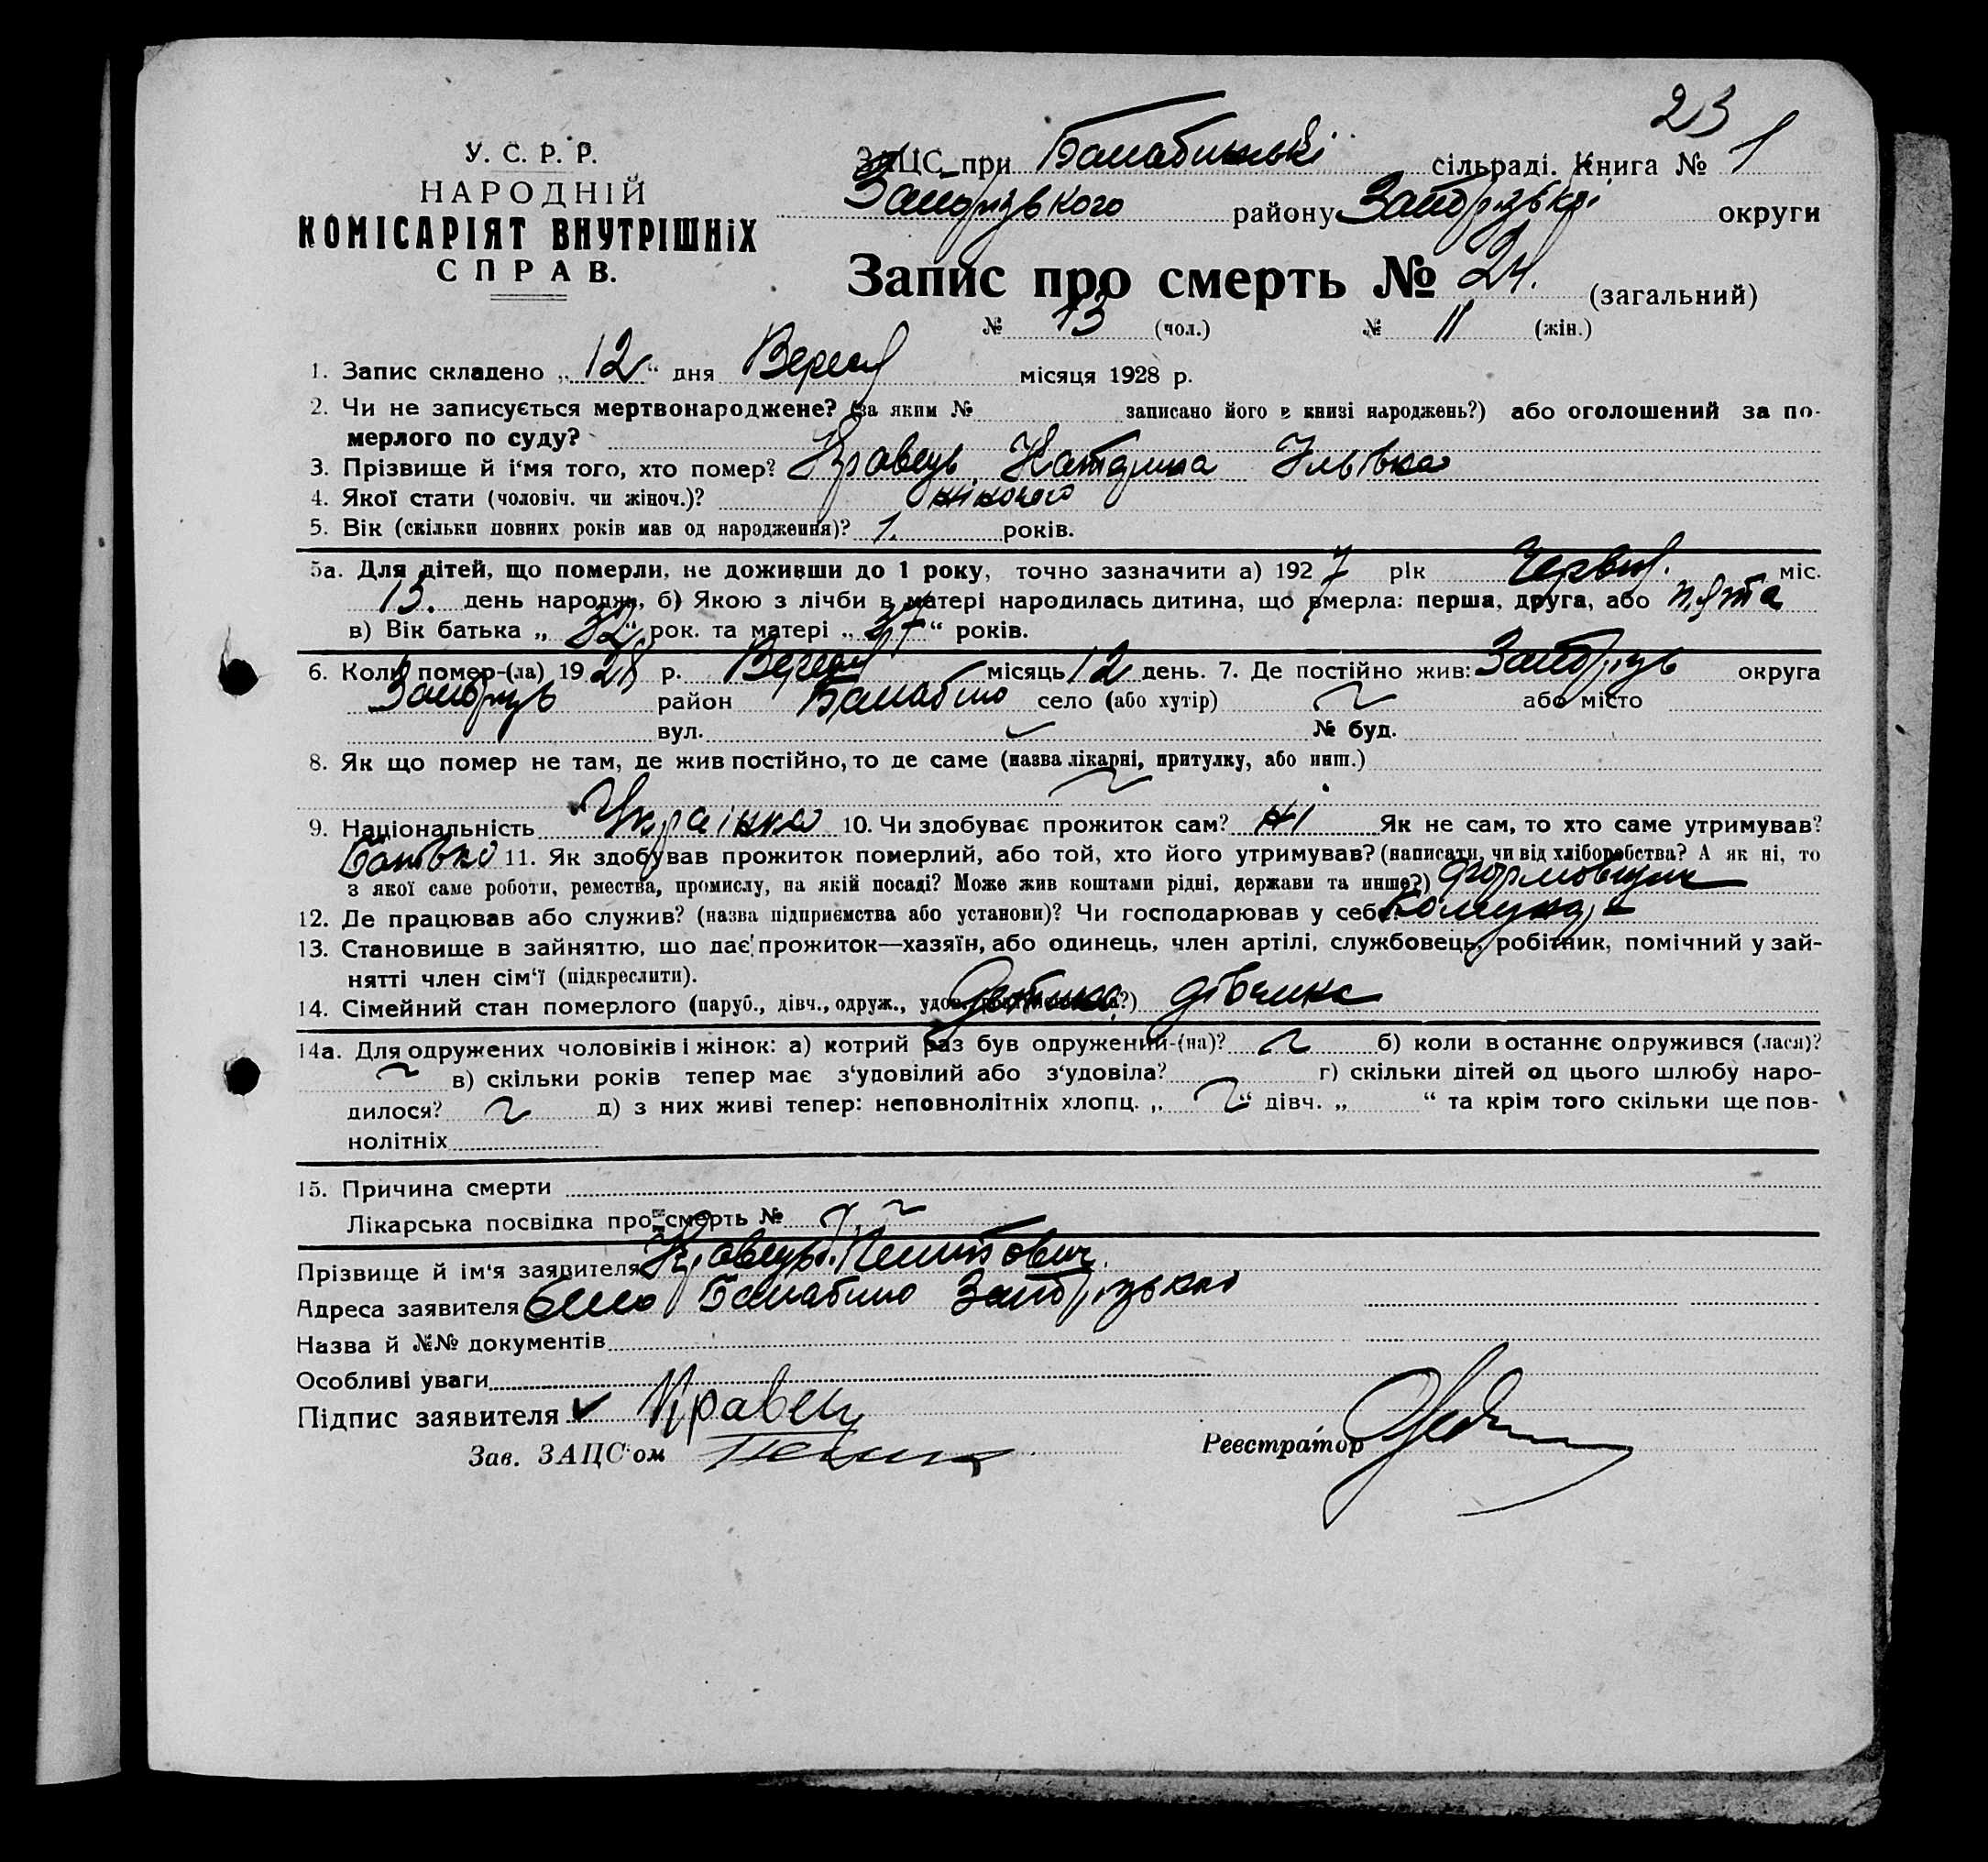 23
У. С. Р. Р.
НАРОДНІЙ
КОМІСАРІЯТ ВНУТРІШНіХ
СПРАВ.
ЗАЦС при Балабинські сільраді. Книга № 1
Запорізького району Запорізької округи
Запис про смерть № 24. (загальний)
№ 13 (чол.) № 11 (жін.)
1. Запис складено „ 12 “ дня Вересня місяця 1928 р.
2. Чи не записується мертвонароджене? (за яким № записано його в книзі народжень?) або оголошений за по-
мерлого по суду?
3. Прізвище й і‘мя того, хто помер? Кравець Катерина Ільівна
4. Якої стати (чоловіч. чи жіноч.)? жіночого
5. Вік (скільки повних років мав од народження)? 1. років.
5а. Для дітей, що померли, не доживши до 1 року, точно зазначити а) 1927 рік Червня. міс.
13. день народж., б) Якою з лічби в матері народилась дитина, що вмерла: перша, друга, або п‘ята
в) Вік батька „ 32 “ рок. та матері „ 37 “ років.
6. Коли помер-(ла) 1928 р. Вересня місяць 12 день. 7. Де постійно жив: Запорізь округа
Запорізь район Балабино село (або хутір) ~ або місто
вул. № буд.
8. Як що помер не там, де жив постійно, то де саме (назва лікарні, притулку, або инш.)
~
9. Національність Українка 10. Чи здобуває прожиток сам? ні Як не сам, то хто саме утримував?
Батько 11. Як здобував прожиток померлий, або той, хто його утримував? (написати, чи від хліборобства? А як ні, то
з якої саме роботи, ремества, промислу, на якій посаді? Може жив коштами рідні, держави та инше?) Формовщик
12. Де працював або служив? (назва підприємства або установи)? Чи господарював у себе? Комунар
13. Становище в зайняттю, що дає прожиток—хазяїн, або одинець, член артілі, службовець, робітник, помічний у зай-
нятті член сім‘ї (підкреслити).
14. Сімейний стан померлого (паруб., дівч., одруж., удов., дівчинка
14а. Для одружених чоловіків і жінок: а) котрий раз був одружений-(на)? ~ б) коли в останнє одружився (лася)?
~ в) скільки років тепер має з‘удовілий або з‘удовіла? г) скільки дітей од цього шлюбу наро-
дилося? ~ д) з них живі тепер: неповнолітніх хлопц. „ ~ “ дівч. „ “ та крім того скільки ще пов-
нолітніх
15. Причина смерти
Лікарська посвідка про смерть №
Прізвище й ім‘я заявителя Кравець
Адреса заявителя село Балабино Запорізького
Назва й №№ документів
Особливі уваги
Підпис заявителя Кравец
Зав. ЗАЦС‘ом
Реєстратор